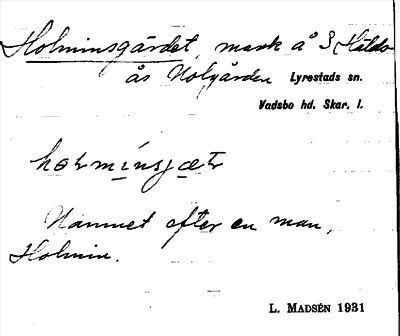 Holminsgärdet, mark å S Hildo
ås Nolgården Lyrestads sn.
Vadsbo hd. Skar. l.
hɷlminsjætɷ
Namnet efter en man,
Holmin.
L. MADSÉN 1931